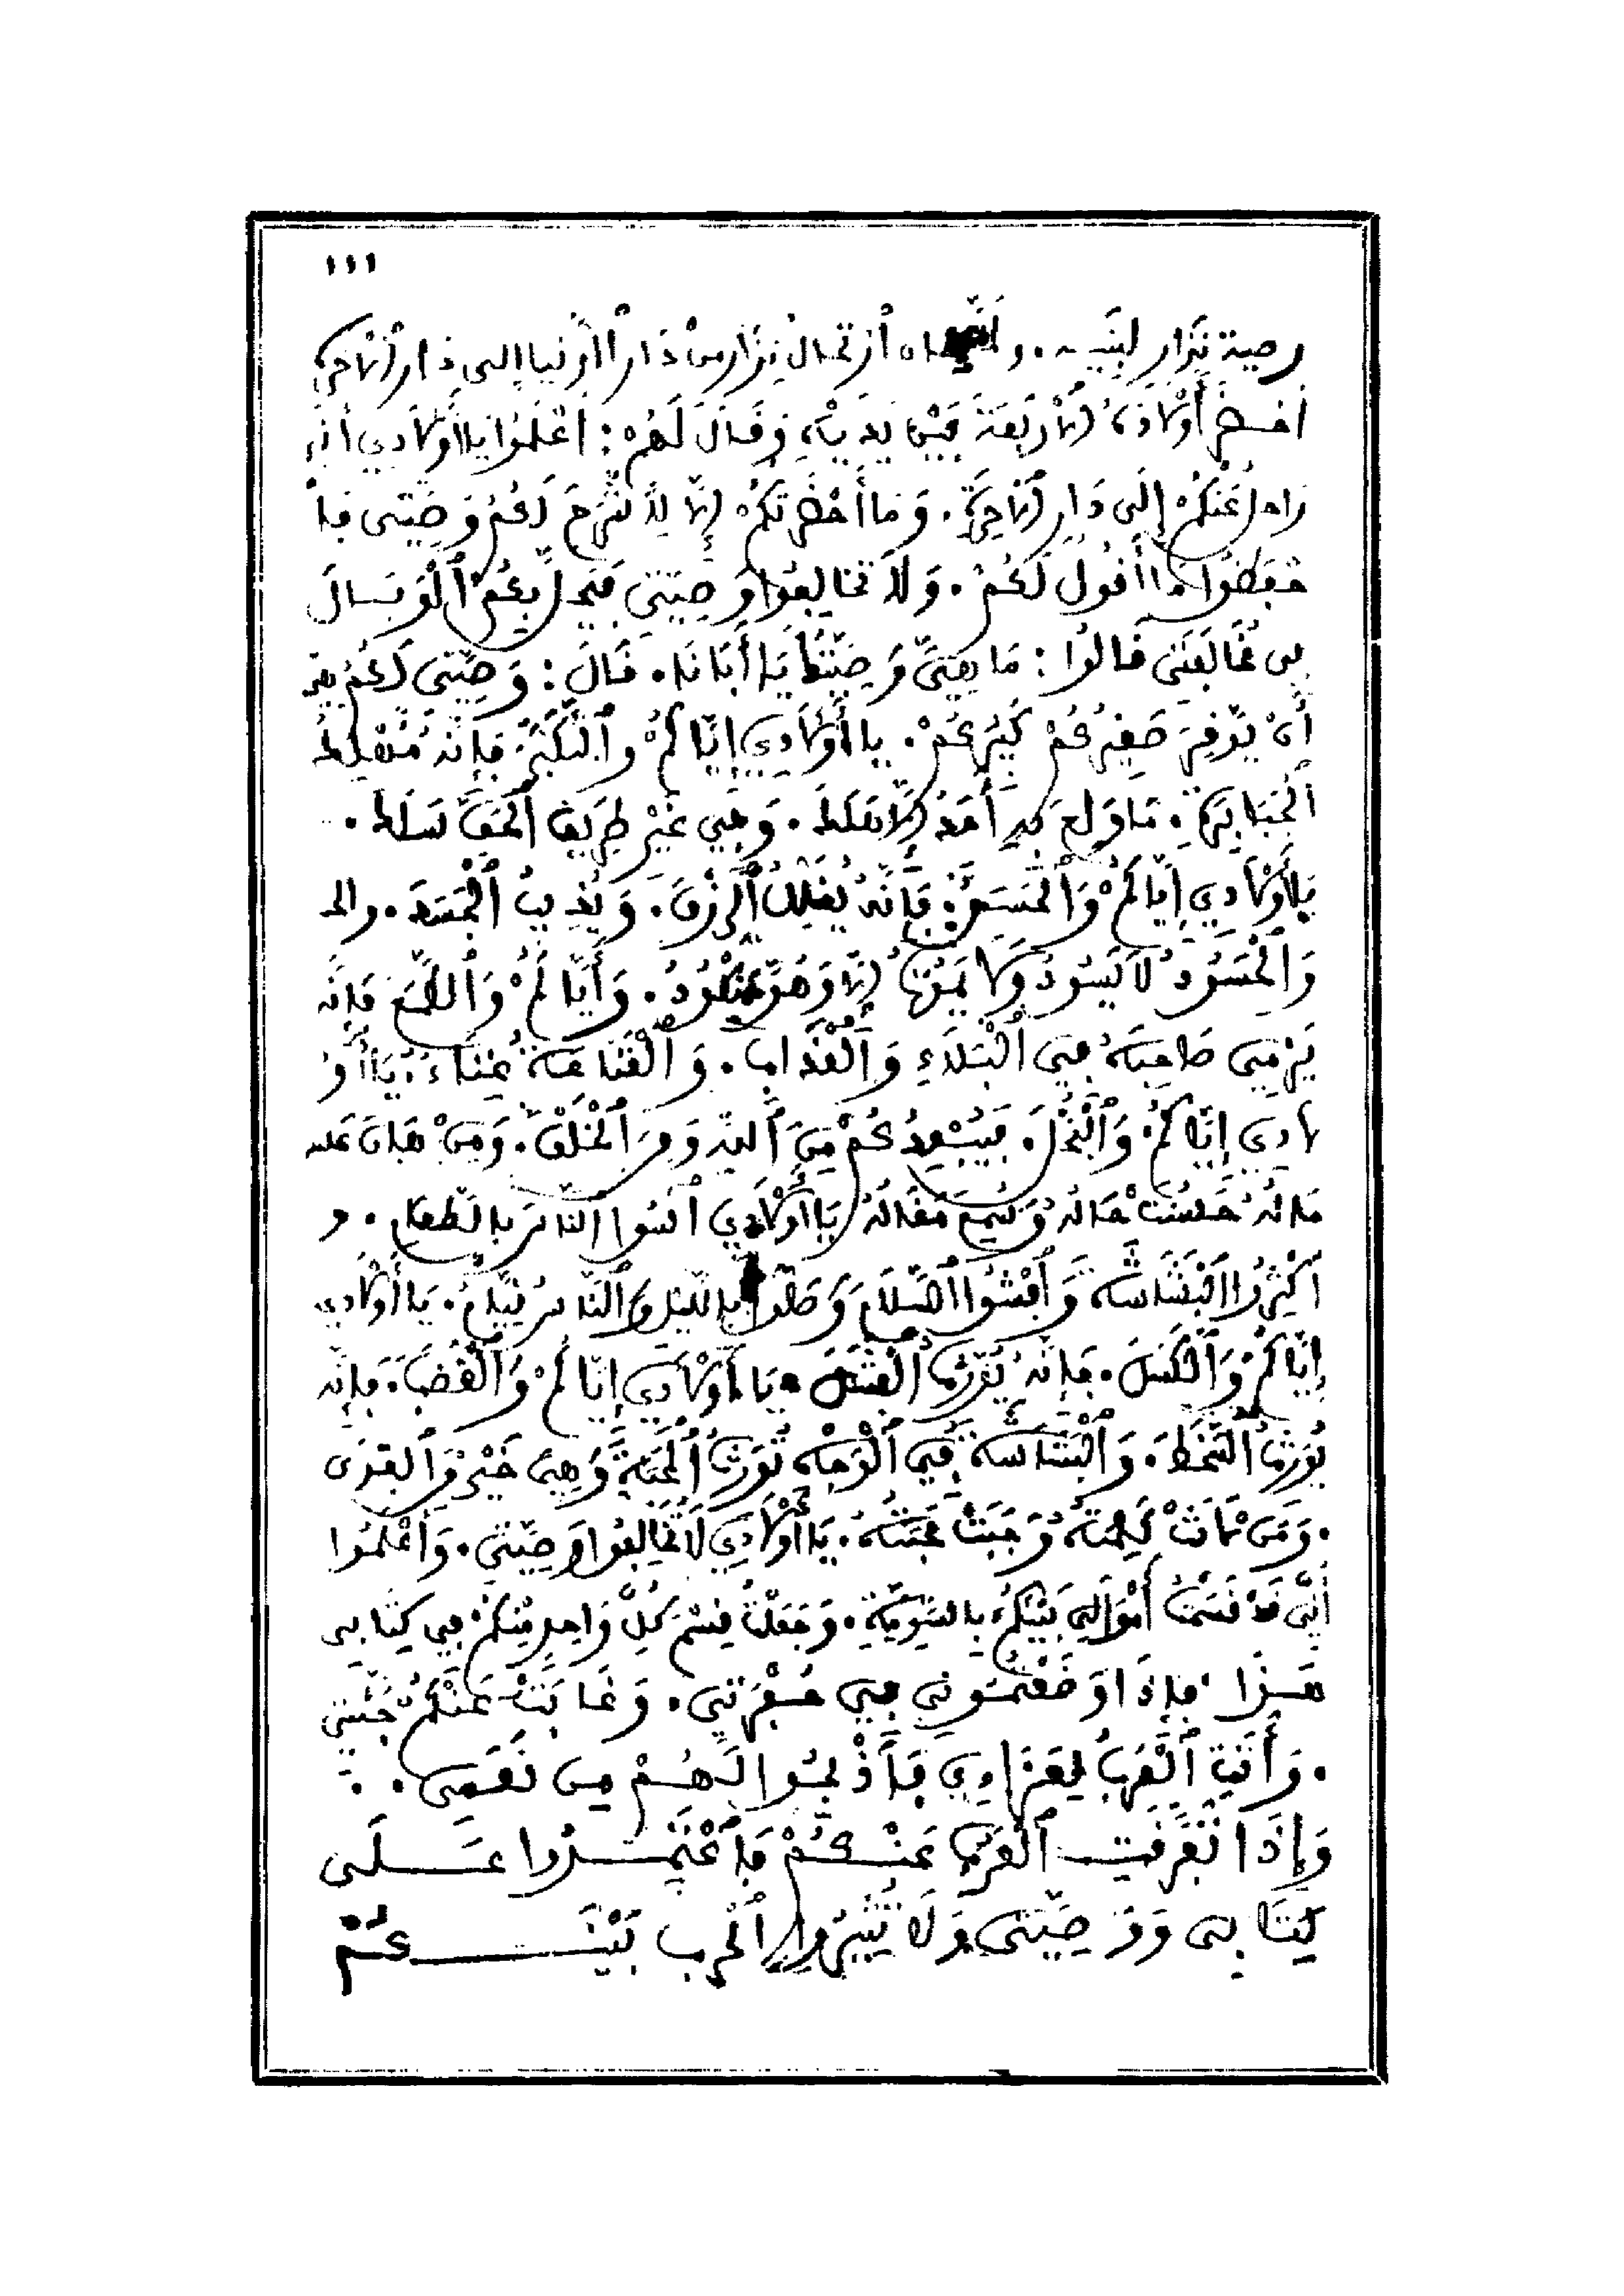 ١١١
وصية نزار لبنيه. و أن تحال نزار من دار الدنيا إلى دار الاخرة
أحضر أَوْلَادَهُ الأَرْبَعَةَ بَيْنَ يَدَيْهِ وَقَالَ لَهُم: اعْلَمُوا يا أَوْلَادِي أنه
راحل عَنكُمْ إِلَى دَارِ الآخِرَةِ. وَمَا أَحْضَرْتُكُمْ إلَّا لِأَشْرَحَ لَكُمْ وَصِيَّتِي فا
حفظوا ما أَقُولُ لَكُمْ. وَلَا تخالِفُوا وَصِيَّتِي فَيَحِلَّ بِكُمْ الْوَبَالَ
في مخالفتي قالوا: مَا هِيَ وَصِيَّتُكَ يَا أَبَانَا. قَالَ: وَصِيَّتِي لَكُمْ هي
أَنْ يُوَقِّرَ صَغِيرُكُمْ كَبِيرَكُمْ. يا أولادي إيّاكُمْ والتَّكَبُّرَ فإنه مُسْقِطُ
الْجَبَابِرَةِ. مَا وَلِعَ به أحد إلَّا سَقَطَ. وَفِي غَيْرِ طَرِيقِ الْحَقِّ سَلَطَ.
يا أولادي إِيّاكُمْ وَالْحَسَدَ: فَإِنَّهُ يُقَلِّلُ الرِّزْقَ. وَيُذِيبُ الْجَسَدَ. والد
وَالْحَسُودُ لَا يَسُودُ وَلَا يَمُوتُ إِلَّا وَهُوَ مَنْكُودُ. وَإِيَّاكُمْ وَالطَّمَعَ فَإِنَّه
يَرْمِي صَاحِبَهُ فِي الْبَلَاءِ وَالْعَذَابِ. وَالْقَنَاعَةُ غِنَاءُ. يَا أَوْ
لادي إيَّاكُمْ وَالْبُخْلَ. فَيُبْعِدُكُمْ مِنَ اللهِ وَمِنَ الْخَلْقِ. وَمَنْ هَانَ عليه
مَالُهُ حَسُنَتْ حَالُهُ وَسُمِعَ مَقَالُهُ يَا أَوْلَادِي النَّاسَ بِالطَّعَامِ. و
أَكْثِرُوا الْبَشَاشَةَ وَأَفْشُوا السَّلَامَ وَصَلُّوا بِاللَّيْلِ وَالنَّاسُ نِيَامُ. يَا أَوْلَادِي
إِيَّاكُمْ وَالْكَسَلَ. فَإِنَّهُ يُورِثُ الْفَشَلَ. يَا أَوْلَادِي إِيَّاكُمْ وَالْغَضَبَ. فَإِنَّه
يُورِثُ السُّخْطَ. وَالْبَشَاشَةُ فِي الْوَجْهِ تُورِثُ الْمَحَبَّةَ وَهِيَ خَيْرٌ مِنَ القِرَى
. وَمَنْ لَانَتْ كَلِمَتُهُ وَجَبَتْ مَحَبَّتُهُ. يَا أَوْلَادِي لَا تُخَالِفُوا وَصِيَّتِي. وَاعْلَمُوا
أَنِّي قَدْ قَسَمْتُ أَمْوَالِي بَيْنَكُمْ بِالسَّوِيَّةِ. وَجَعَلْتُ قِسْمَ كُلِّ وَاحِدٍ مِنْكُمْ فِي كِتَابِي
هَذَا فَإِذَا وَضَعْتُمُونِي فِي حُفْرَتِي. وَغَابَتْ عَنْكُمْ جُثَّتِي
. وَأَتَتْ الْعَرَبُ لِعَزَاءِي فَاَذْبَحُوا لَهُمْ مِنْ نَعَمِي. .
وَإِذَا تَفَرَّقَتِ الْعَرَبُ عَنْكُمْ فَاعْتَمِدُوا عَلَى
كِتَابِي وَوَصِيَّتِي وَلَا تُثِيرُوا الْحَرب بَيْنَكُمْ